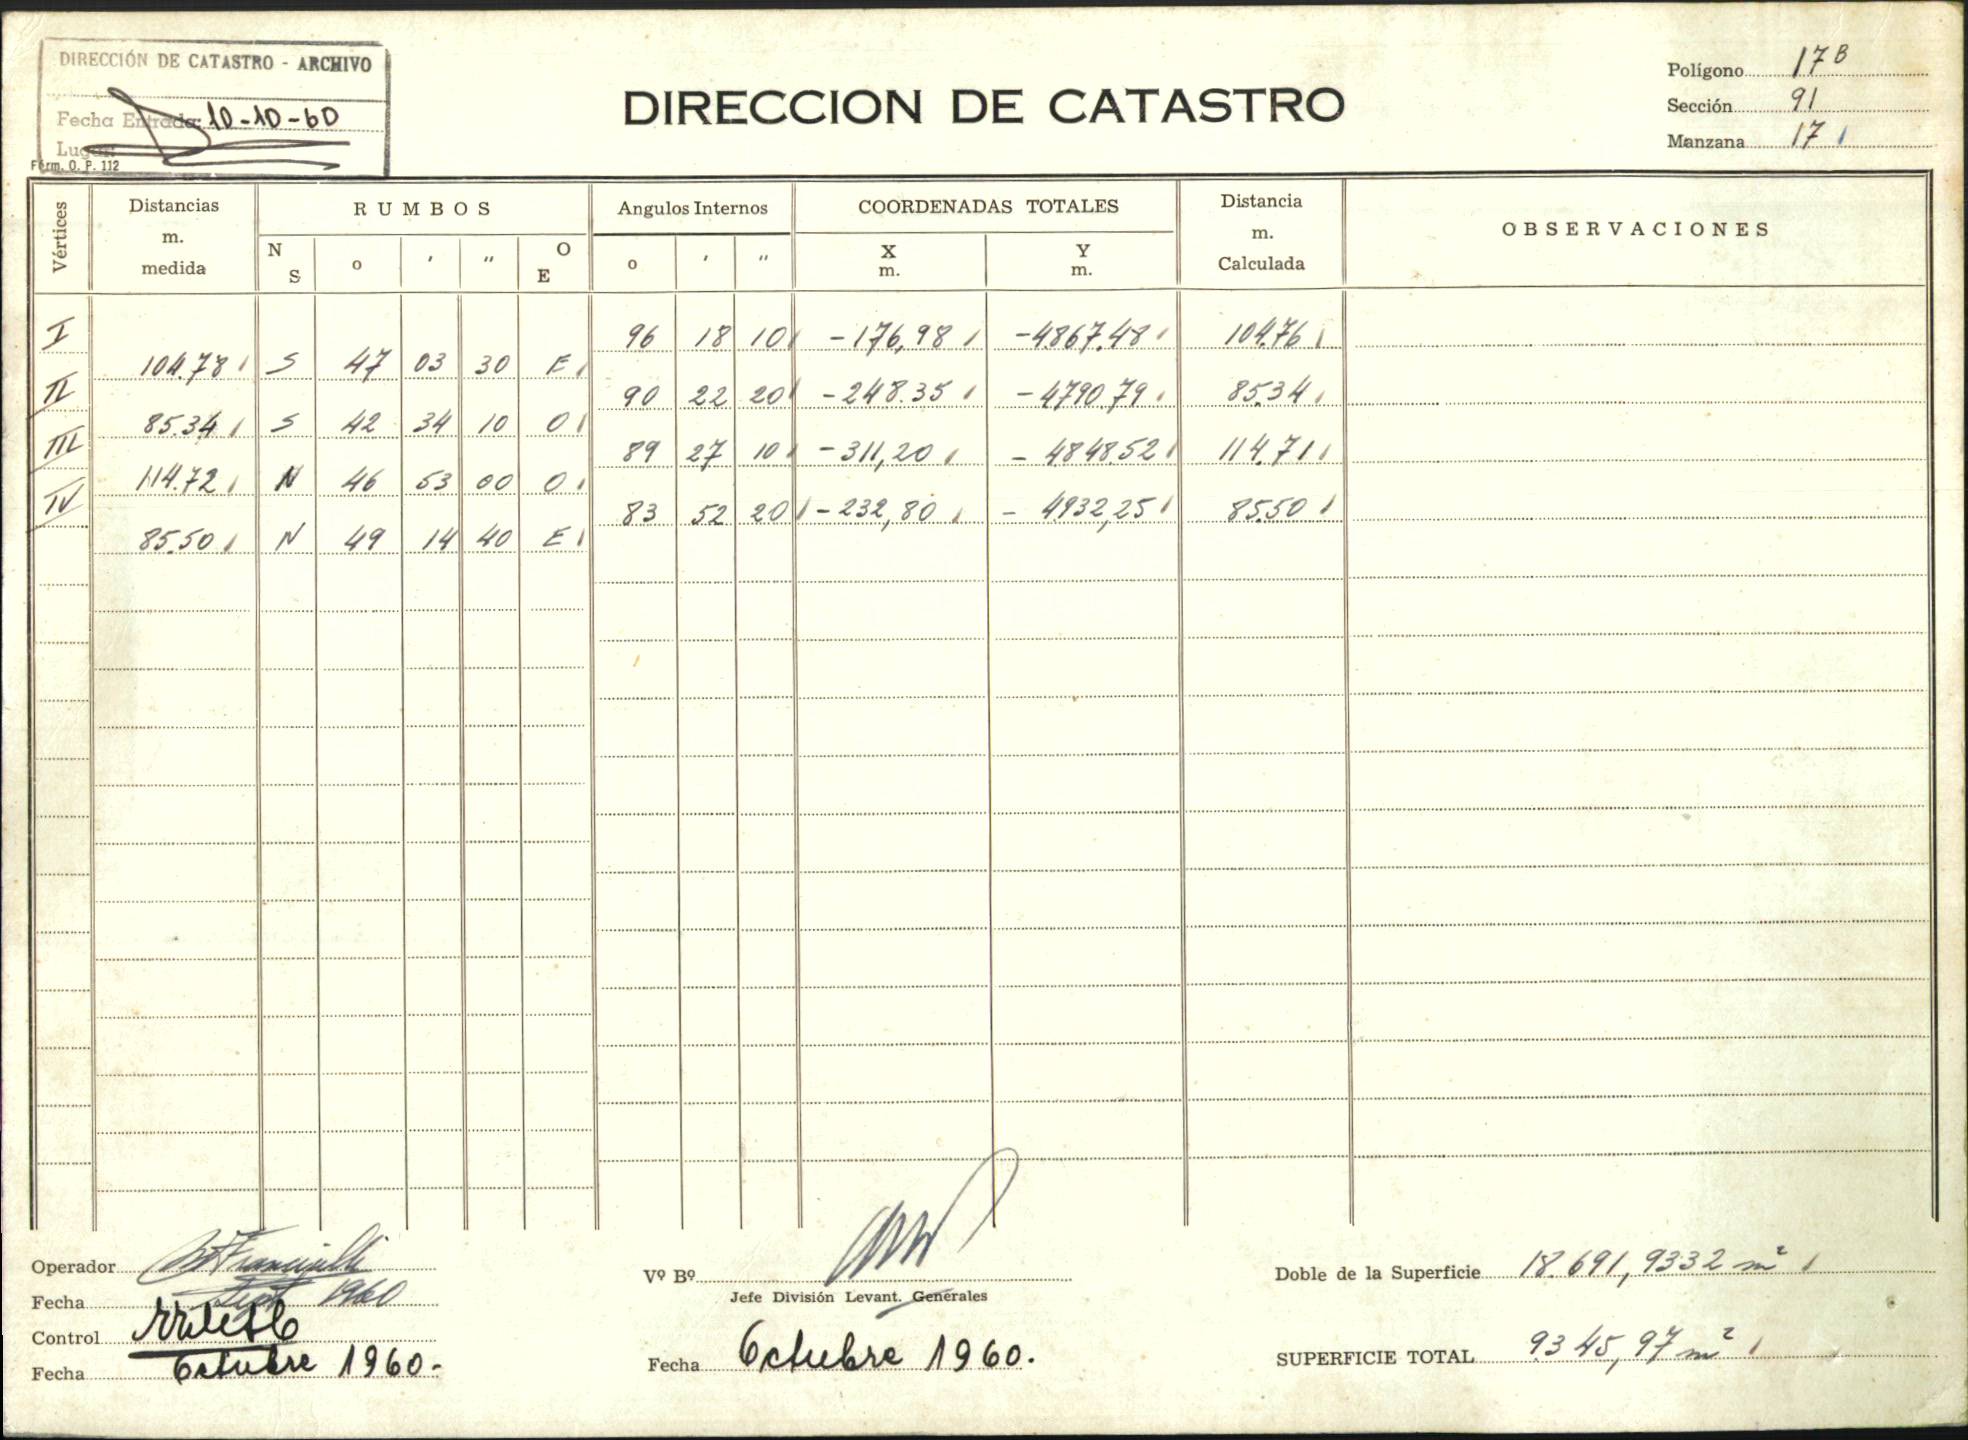 DIRECCIÓN DE CATASTRO - ARCHIVO
Fecha Entrada: 10-10-60
Lugar:
Form. O. P. 112
DIRECCION DE CATASTRO
Polígono 17 B
Sección 91
Manzana 17
Vértices
Distancias m. medida
RUMBOS
N S o ' " O E
Angulos Internos
o ' "
COORDENADAS TOTALES
X m. Y m.
Distancia m. Calculada
OBSERVACIONES
I 96 18 10 -176,98 -4867.48 104.76
104.78 S 47 03 30 E
II 90 22 20 -248.35 -4790.79 85.34
85.34 S 42 34 10 O
III 89 27 10 -311,20 - 4848.52 114.71
114.72 N 46 53 00 O
IV 83 52 20 -232,80 - 4932,25 85.50
85.50 N 49 14 40 E
Operador
Fecha Sept 1960
Control
Fecha Octubre 1960.-
Vº Bº
Jefe División Levant. Generales
Fecha Octubre 1960.
Doble de la Superficie 18.691,9332 m²
SUPERFICIE TOTAL 9345,97 m²